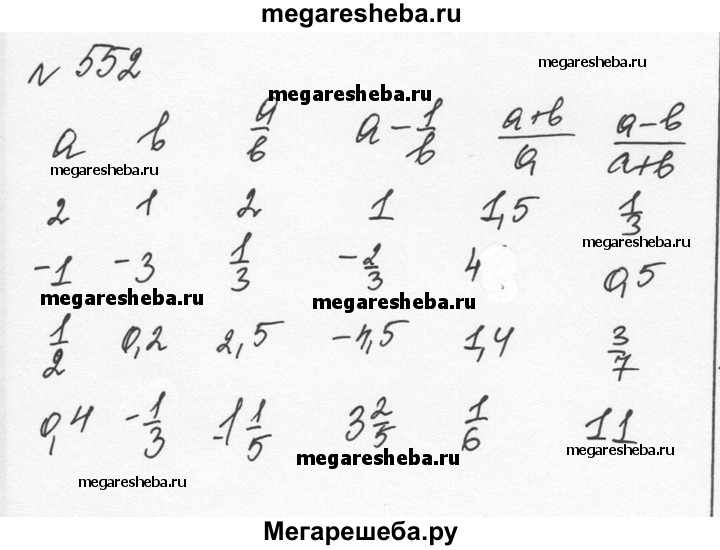 megaresheba.ru
№ 552
megaresheba.ru
megaresheba.ru
a b a/b a - 1/b (a+b)/a (a-b)/(a+b)
megaresheba.ru
2 1 2 1 1,5 1/3
megaresheba.ru
-1 -3 1/3 -2/3 4 0,5
megaresheba.ru
megaresheba.ru
1/2 0,2 2,5 -4,5 1,4 3/7
0,4 -1/3 -1 1/5 3 2/5 1/6 11
megaresheba.ru
megaresheba.ru
megaresheba.ru
Мегарешеба.ру